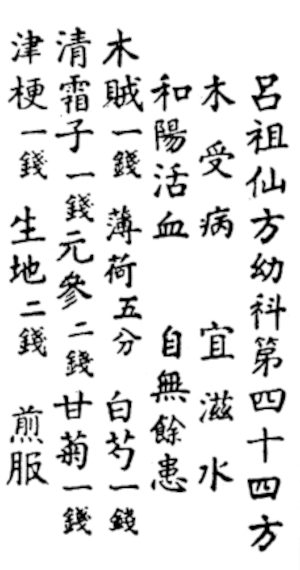 呂祖仙方幼科第四十四方
木受病 宜滋水
和陽活血 自無餘患
木賊一錢 薄荷五分 白芍一錢
清霜子一錢 元參二錢 甘菊一錢
津梗一錢 生地二錢 煎服